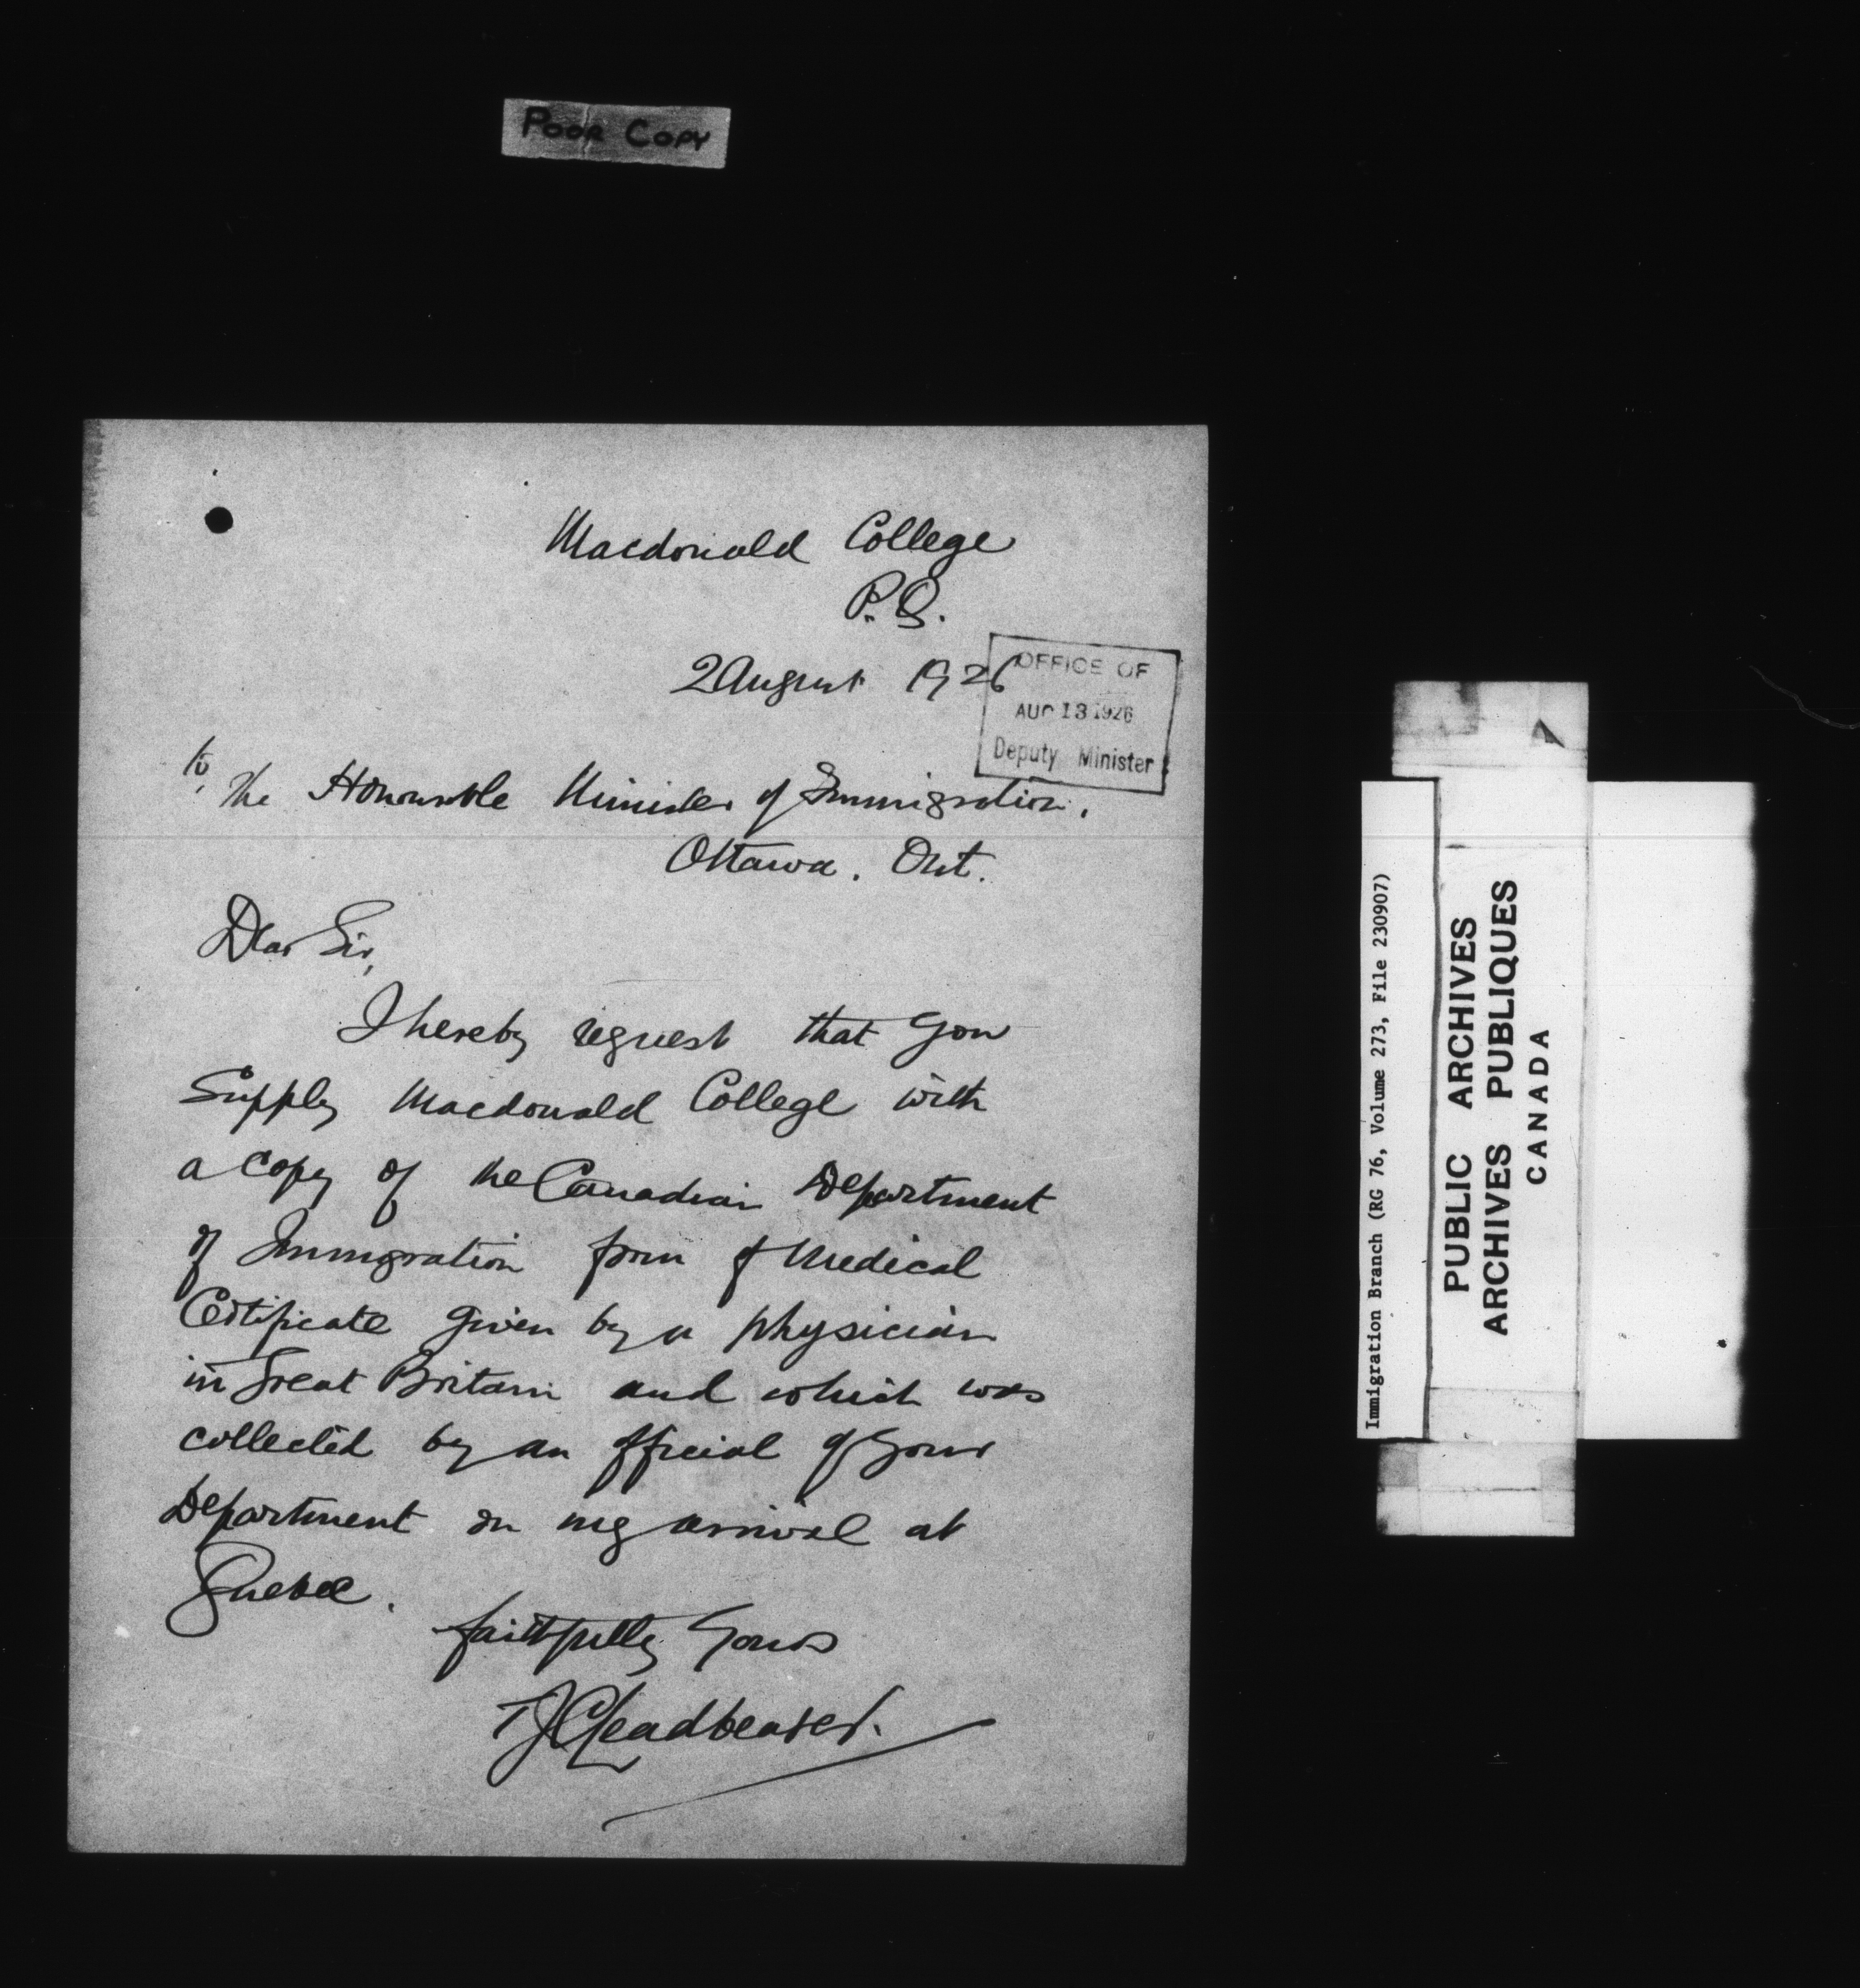 POOR COPY
Macdonald College
P.Q.
2 August 1926
OFFICE OF
AUG 13 1926
Deputy Minister
to, The Honourable Minister of Immigration.
Ottawa. Ont.
Dear Sir,
I hereby request that you
Supply Macdonald College with
a copy of the Canadian Department
of Immigration form of Medical
Certificate given by a physician
in Great Britain and which was
collected by an official of your
Department on my arrival at
Quebec.
faithfully yours
TJC Leadbeater.
Immigration Branch (RG 76, Volume 273, File 230907)
PUBLIC ARCHIVES
ARCHIVES PUBLIQUES
CANADA